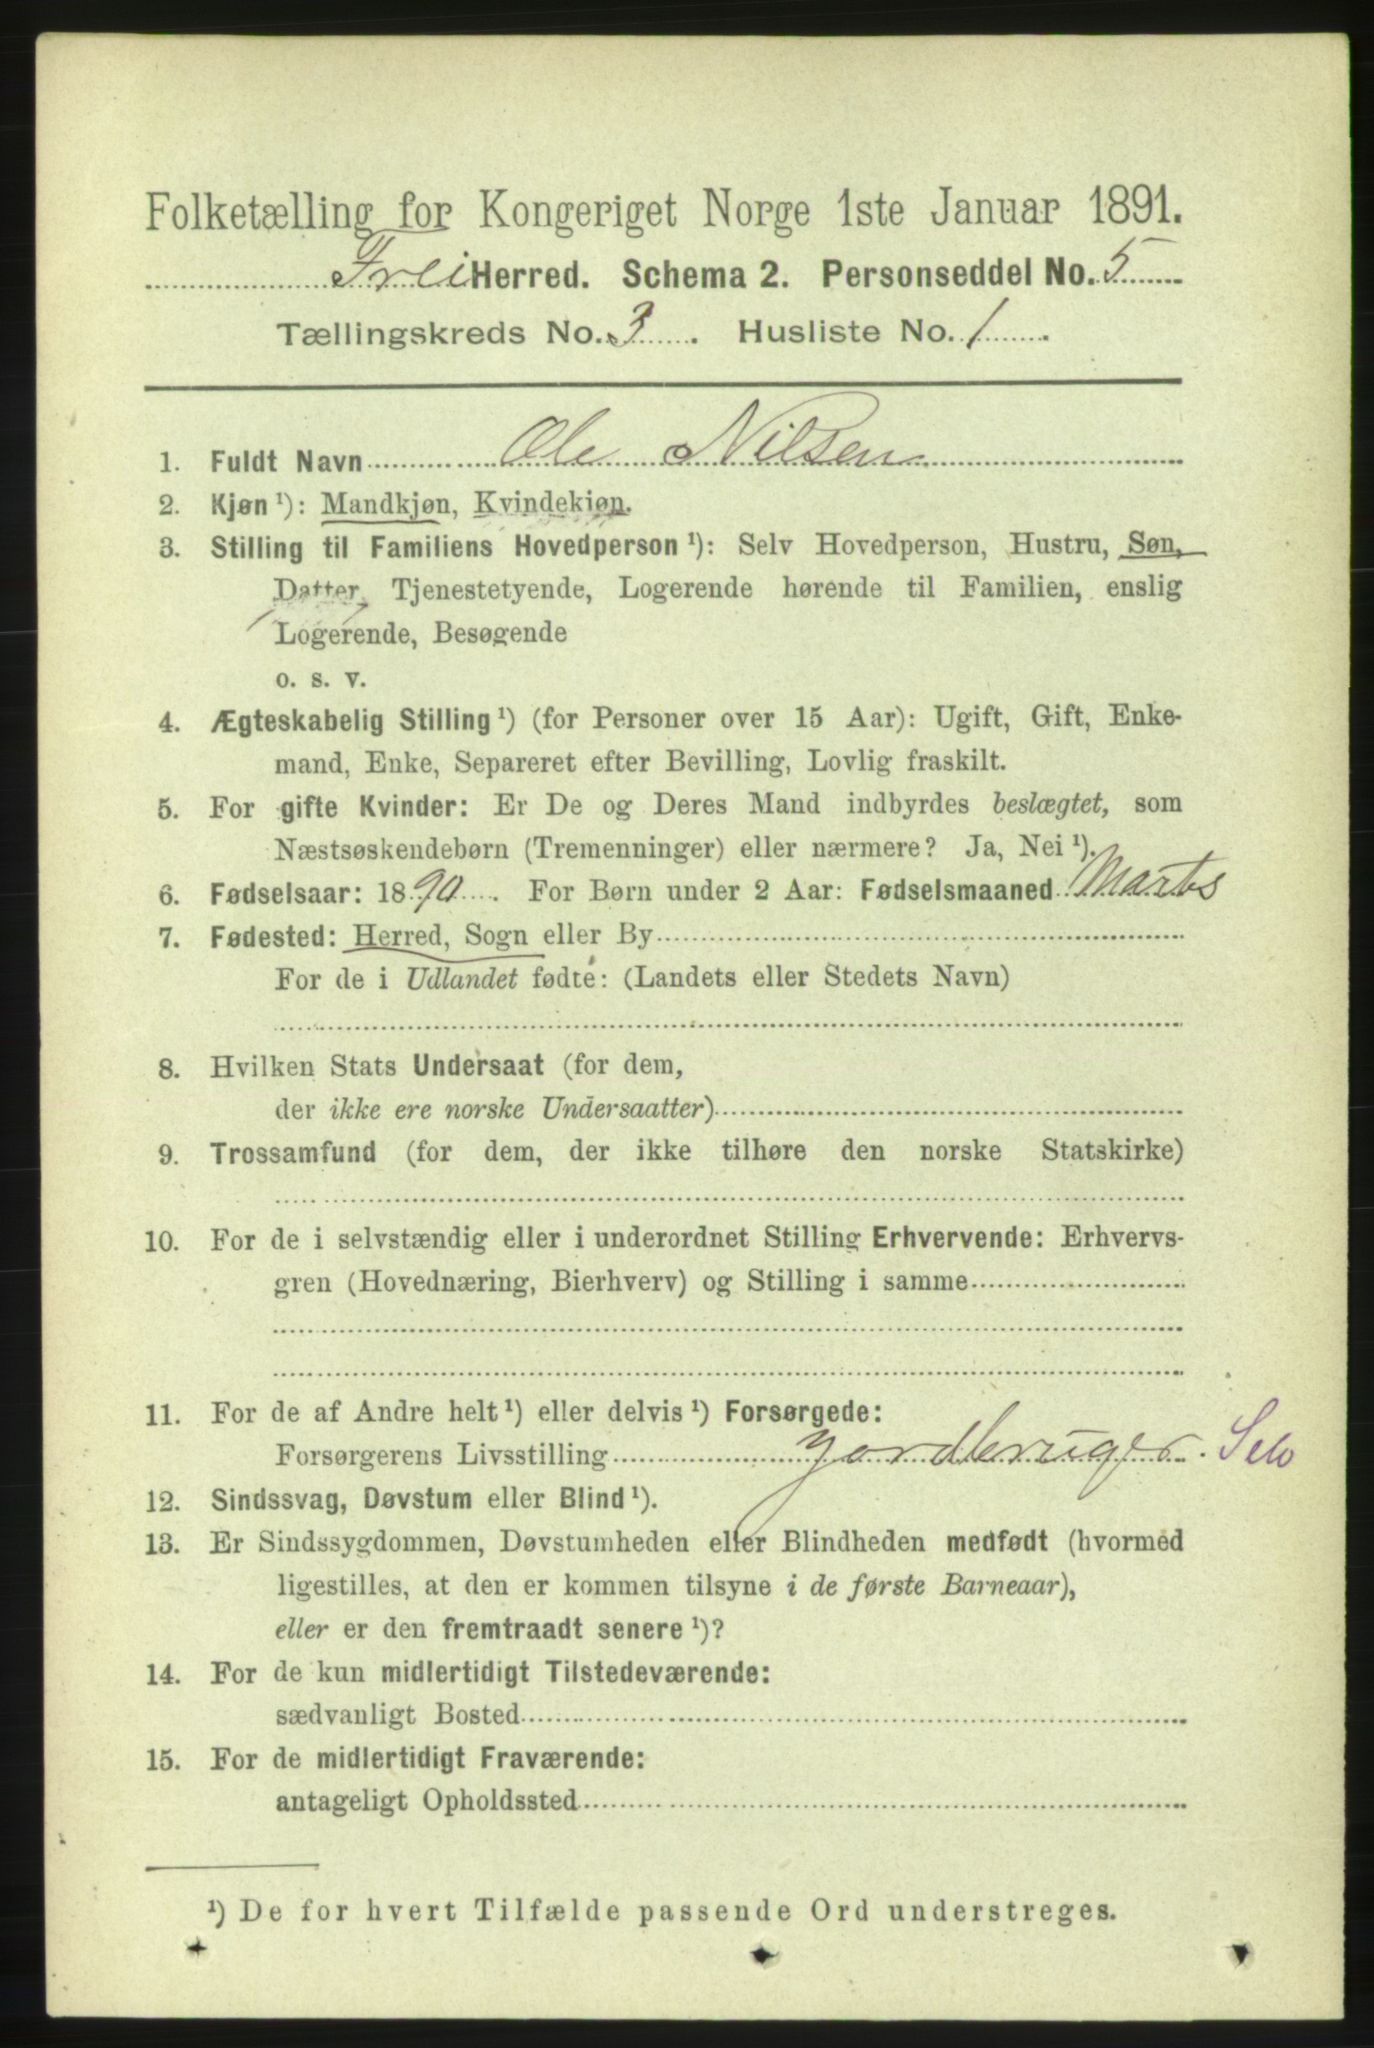 Folketælling for Kongeriget Norge 1ste Januar 1891.
Frei Herred. Schema 2. Personseddel No. 5
Tællingskreds No. 3. Husliste No. 1.
1. Fuldt Navn Ole Nilsen
2. Kjøn ¹): Mandkjøn, Kvindekjøn.
3. Stilling til Familiens Hovedperson ¹): Selv Hovedperson, Hustru, Søn,
Datter, Tjenestetyende, Logerende hørende til Familien, enslig
Logerende, Besøgende
o. s. v.
4. Ægteskabelig Stilling ¹) (for Personer over 15 Aar): Ugift, Gift, Enke-
mand, Enke, Separeret efter Bevilling, Lovlig fraskilt.
5. For gifte Kvinder: Er De og Deres Mand indbyrdes beslægtet, som
Næstsøskendebørn (Tremenninger) eller nærmere? Ja, Nei ¹).
6. Fødselsaar: 1890. For Børn under 2 Aar: Fødselsmaaned Marts
7. Fødested: Herred, Sogn eller By
For de i Udlandet fødte: (Landets eller Stedets Navn)
8. Hvilken Stats Undersaat (for dem,
der ikke ere norske Undersaatter)
9. Trossamfund (for dem, der ikke tilhøre den norske Statskirke)
10. For de i selvstændig eller i underordnet Stilling Erhvervende: Erhvervs-
gren (Hovednæring, Bierhverv) og Stilling i samme
11. For de af Andre helt ¹) eller delvis ¹) Forsørgede:
Forsørgerens Livsstilling Jordbruger. Selv
12. Sindssvag, Døvstum eller Blind ¹).
13. Er Sindssygdommen, Døvstumheden eller Blindheden medfødt (hvormed
ligestilles, at den er kommen tilsyne i de første Barneaar),
eller er den fremtraadt senere ¹)?
14. For de kun midlertidigt Tilstedeværende:
sædvanligt Bosted
15. For de midlertidigt Fraværende:
antageligt Opholdssted
¹) De for hvert Tilfælde passende Ord understreges.